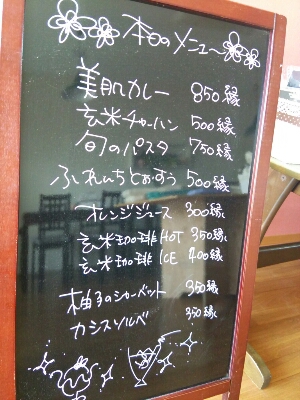 本日のメニュー
美肌カレー 850縁
玄米チャーハン 500縁
旬のパスタ 750縁
ふれんちとぉすぅ 500縁
オレンジジュース 300縁
玄米珈琲HOT 350縁
玄米珈琲ICE 400縁
柚子のシャーベット 350縁
カシスソルベ 350縁